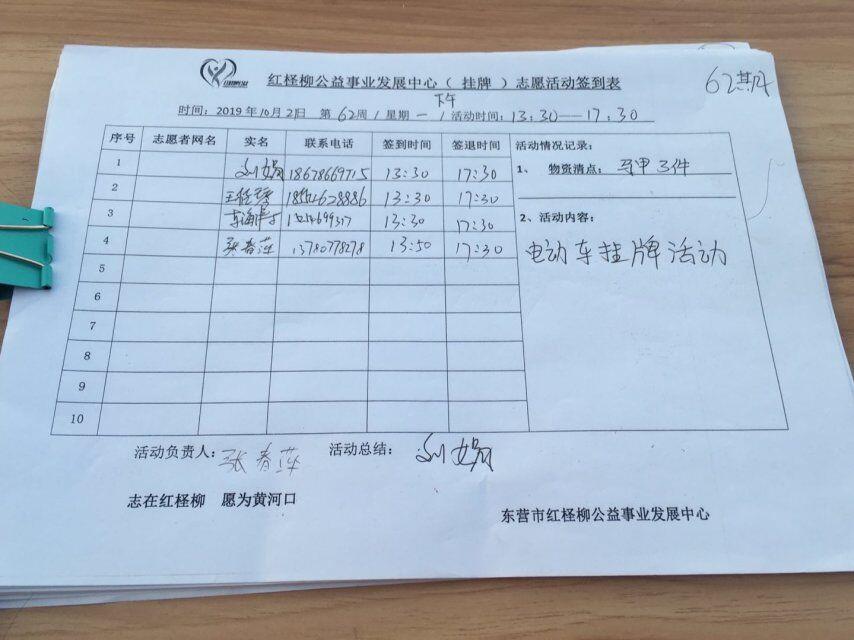 红柽柳公益事业发展中心（ 挂牌 ）志愿活动签到表
62期
下午
时间：2019年10月21日 第62周/星期一/活动时间：13:30—17:30
序号 志愿者网名 实名 联系电话 签到时间 签退时间 活动情况记录：
1 刘娟 18678669715 13:30 17:30 1、 物资清点：马甲3件
2 13:30 17:30
3 13:30 17:30 2、活动内容：
4 张春萍 13:50 17:30 电动车挂牌活动
5
6
7
8
9
10
活动负责人：张春萍 活动总结：刘娟
志在红柽柳 愿为黄河口
东营市红柽柳公益事业发展中心